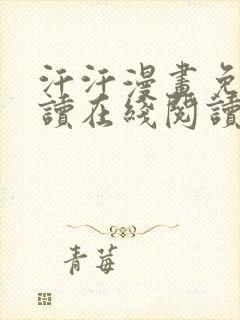 汗汗漫畫免
讀在綫閱讀
青莓